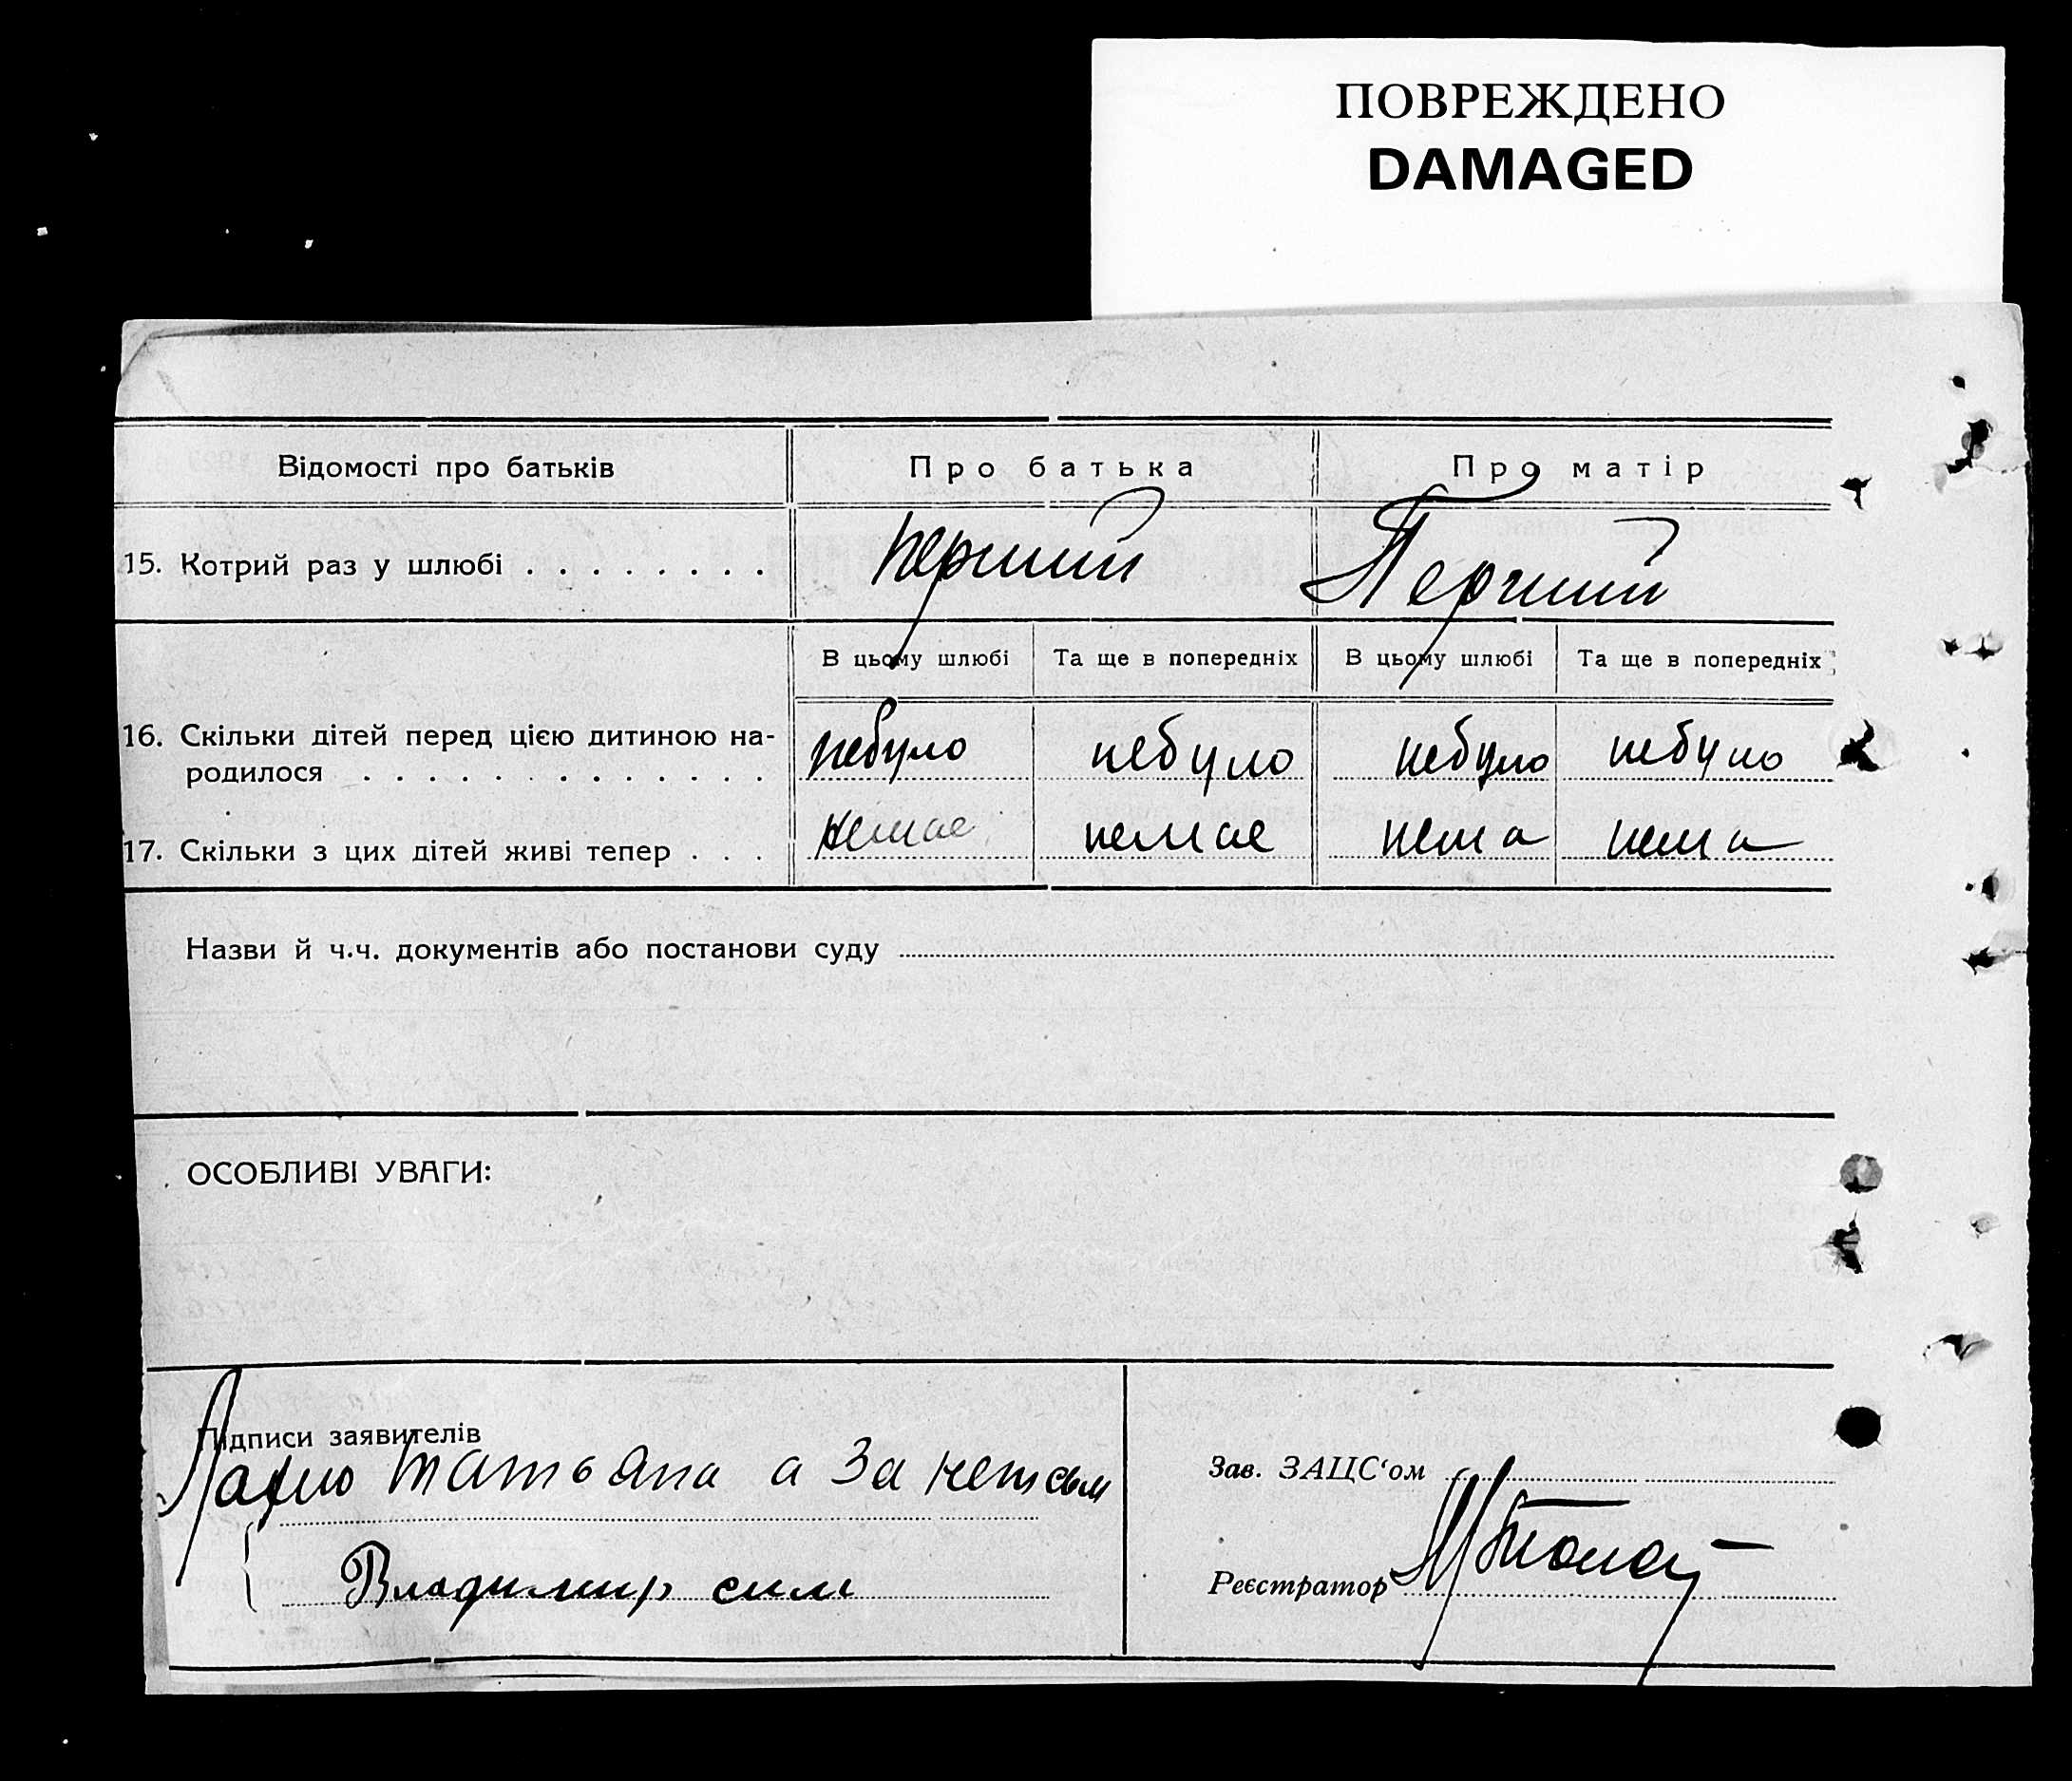 ПОВРЕЖДЕНО
DAMAGED
Відомості про батьків
Про батька
Про матір
15. Котрий раз у шлюбі . . . . . . . .
перший
Перший
В цьому шлюбі
Та ще в попередніх
В цьому шлюбі
Та ще в попередніх
16. Скільки дітей перед цією дитиною на-
родилося . . . . . . . . . . . . .
небуло
небуло
небуло
небуло
17. Скільки з цих дітей живі тепер . . .
немає
немає
нема
нема
Назви й ч.ч. документів або постанови суду
ОСОБЛИВІ УВАГИ:
Підписи заявителів
Татьяна а За
Владимир
Зав. ЗАЦС‘ом
Реєстратор